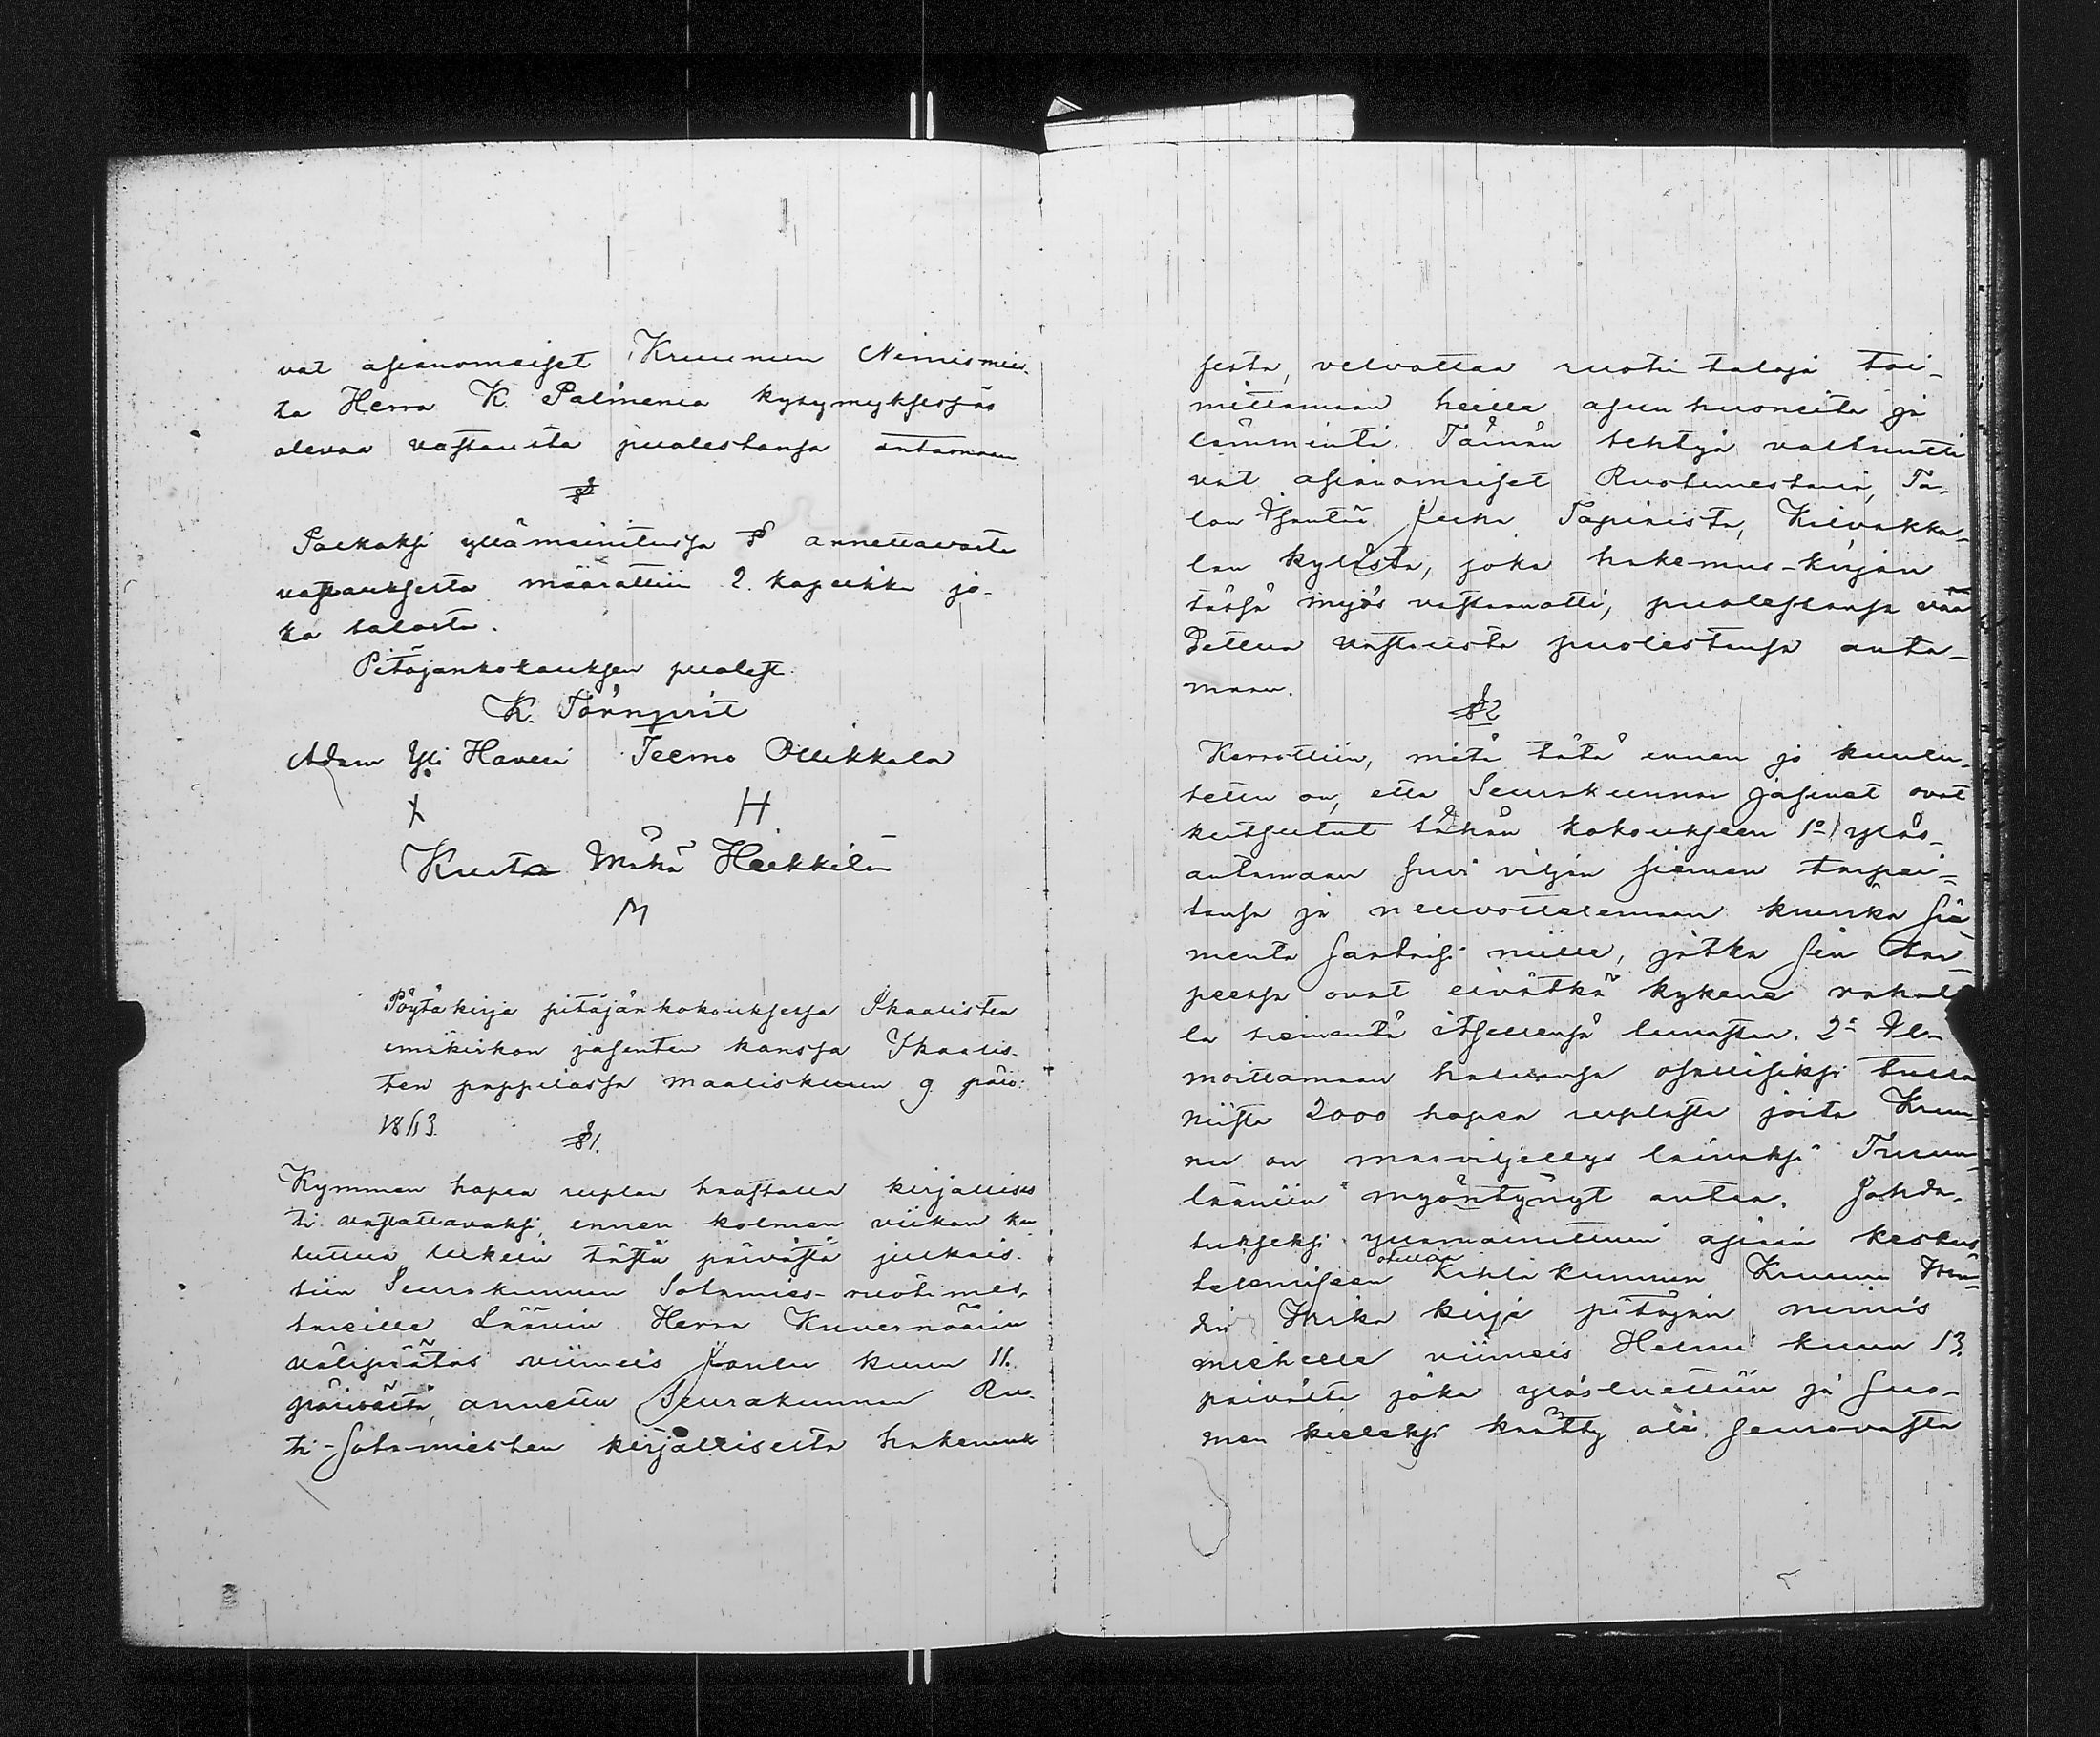 vat asianomaiset Kruunun Nimismies-
ta Herra K. Palmenia kysymyksessäs
olevaa vastausta puolestansa antamaan.
§
Palkaksi ylläminitussa § annettavasta
vastauksesta määrättiin 2. kapeikka jo-
ka talosta.
Pitäjänkokouksen puolest.
K. Törnqvist
Adam Yli Haveri Teemo Ollikkala
X H
Kusta Wähä Heikkilä
M
Pöytäkirja pitäjänkokouksessa Ikaalisten
emäkirkon jäsenten kanssa Ikaalis-
ten pappilassa maaliskuun 9 päiv:
1863.
§1.
Kymmen hopea ruplan haastalla kirjallises
ti vastattavaksi, ennen kolmen viikon ku
luttua lukein tästä päivästä julkais-
tiin Seurakunnan Sotamies-ruotimes-
tareille Läänin Herra Kuvernöörin
välipäätös viimeis Joulu kuun 11.
päivästä, annettu Seurakunnan Ruo-
ti-sotamiesten kirjallisesta hakemuk
sesta, velvottaa ruoti taloja toi-
mittamaan heille asuu huoneita ja
lämmintä. Tämän tehtyä valtuutti
vat asianomaiset Ruotimestarit, Ta-
lon Isäntää Juha Tapiaista, Kilvakka-
lan kylästä, joka hakemus-kirjan
tässä myös vastaanotti, puolestansa vaa
dettua vastausta puolestansa anta-
maan.
§2
Kerrottiin, mitä tätä ennen jo kuulu-
tettu on, että Seurakunnan jäsenet ovat
kutsutut tähän kokoukseen 1o) ylös-
antamaan suvi viljan siemen tarpei-
tansa ja neuvottelemaan kuinka sie
mentä saataisi niille, jotka sen tar-
peessa ovat eivätkä kykene rahal
la siementä itsellensä lunastaa. 2o Il-
moittamaan haluansa osallisiksi tulla
niistä 2000 hopea ruplasta joita Kruu-
nu on maaviljellys lainaksi Turun
lääniin myöntynyt antaa. Johda-
tukseksi yllämainittuun asiain keskus-
telemiseen oli Kihla kunnan Kruunu Wou-
din Wirka kirja pitäjän nimis
miehelle viimeis Helmi kuun 13.
päivältä joka ylösluettiin ja Suo-
men kieleksi käätty oli seuraavasta